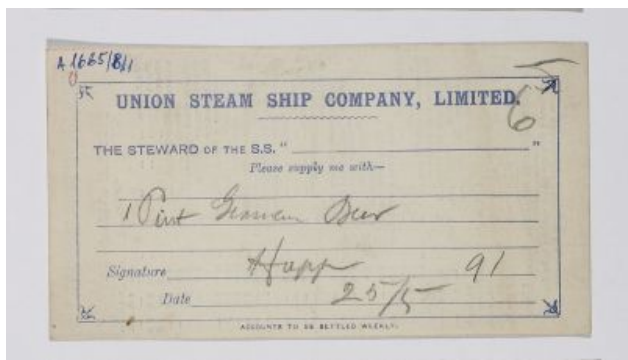 A 1665/8/1
6/
UNION STEAM SHIP COMPANY, LIMITED.
THE STEWARD OF THE S.S. " "
Please supply me with—
1 Pint German Beer
Signature Happ 91
Date 25/5
ACCOUNTS TO BE SETTLED WEEKLY.